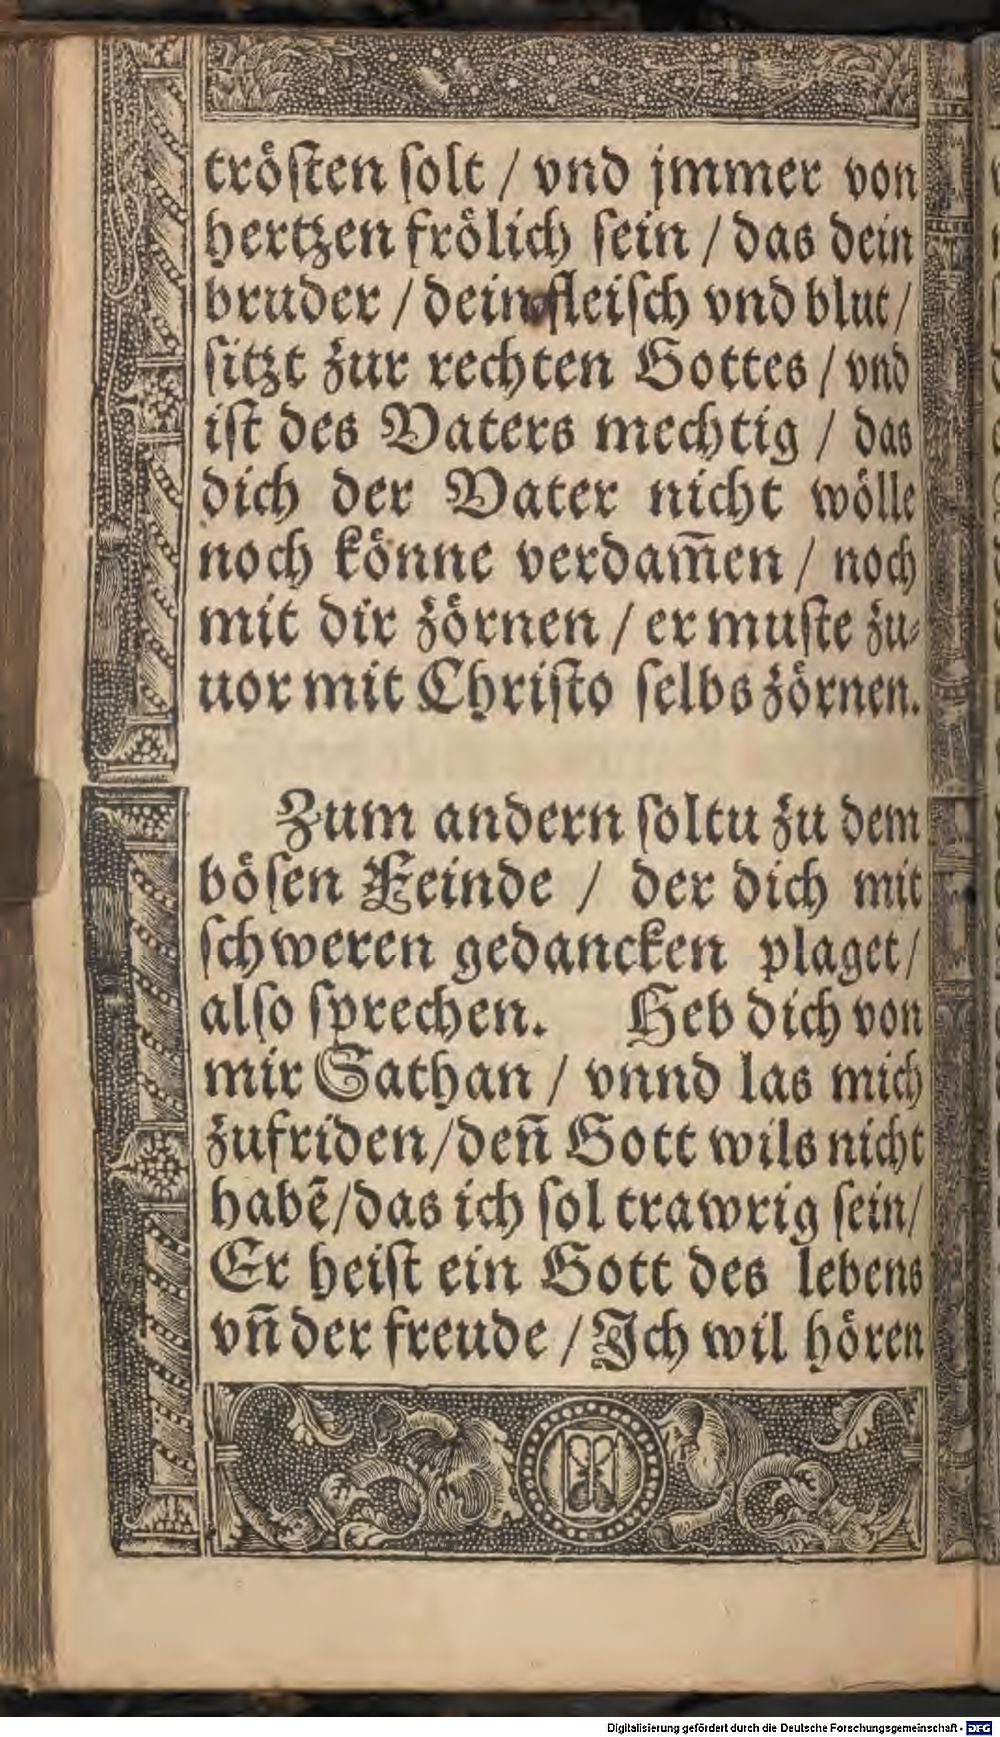 tröſten ſolt / vnd jmmer von
hertzen frölich ſein / das dein
bruder / dein fleiſch vnd blut /
ſitzt zur rechten Gottes / vnd
iſt des Vaters mechtig / das
dich der Vater nicht wölle
noch könne verdam̄en / noch
mit dir zörnen / er muſte zu⸗
uor mit Chriſto ſelbs zörnen.
Zum andern ſoltu zu dem
böſen Feinde / der dich mit
ſchweren gedancken plaget /
alſo ſprechen. Heb dich von
mir Sathan / vnnd las mich
zufriden / den̄ Gott wils nicht
habē / das ich ſol trawrig ſein /
Er heiſt ein Gott des lebens
vn̄ der freude / Ich wil hören
Digitalisierung gefördert durch die Deutsche Forschungsgemeinschaft - DFG